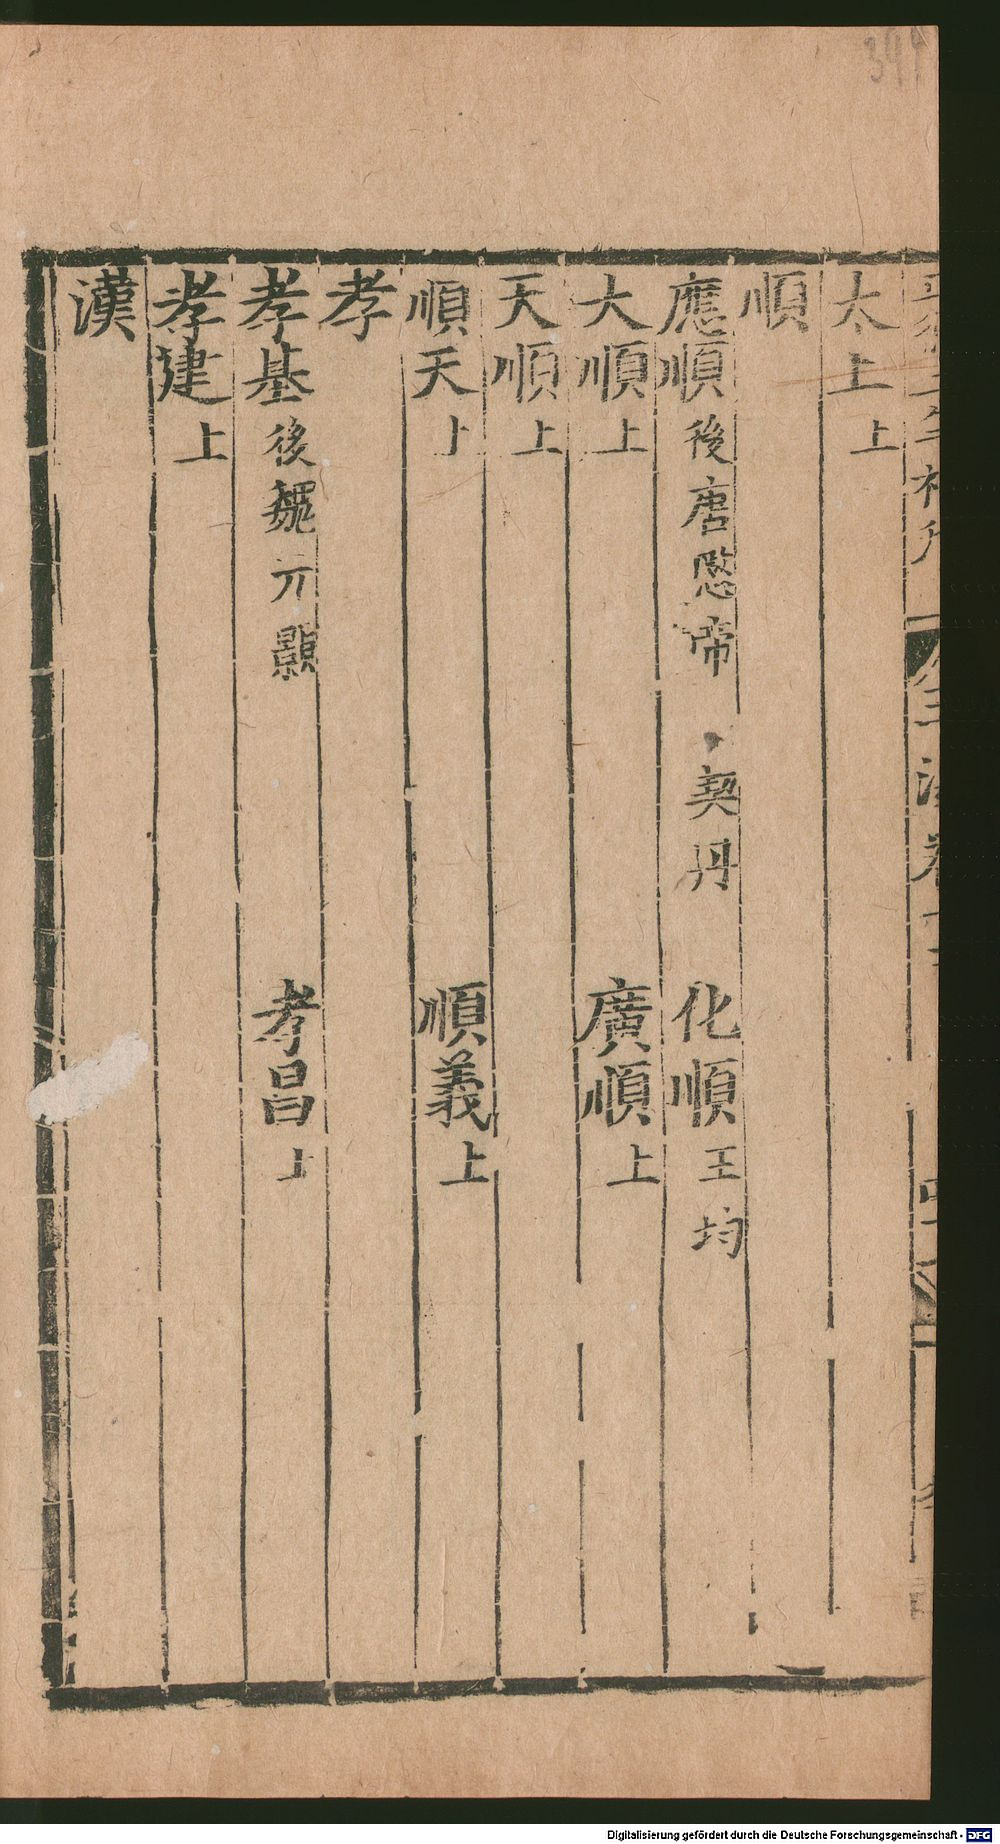 太上上
順
應順後唐愍帝、契丹 化順王均
大順上 廣順上
天順上
順天上 順義上
孝
孝基後魏元顥 孝昌上
孝建上
漢
Digitalisierung gefördert durch die Deutsche Forschungsgemeinschaft - DFG